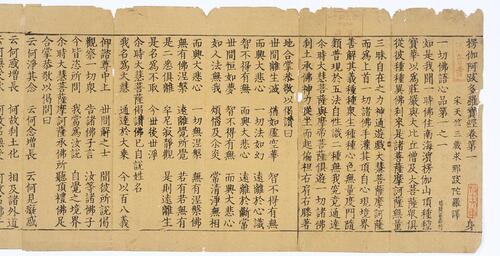 楞伽阿跋多羅寶經卷第一 身
宋天竺三藏求那跋陀羅譯
一切佛語心品第一之一
如是我聞一時佛住南海濱楞伽山頂種種
寶華以為莊嚴與大比丘僧及大菩薩眾俱
從彼種種異佛剎來是諸菩薩摩訶薩無量
三昧自在之力神通遊戲大慧菩薩摩訶薩
而為上首一切諸佛手灌其頂自心現境界
善解其義種種眾生種種心色無量度門隨
類普現於五法自性識二種無我究竟通達
尒時大慧菩薩與摩帝菩薩俱遊一切諸佛
剎土承佛神力從坐而起偏袒右肩右膝著
地合掌恭敬以偈讚曰
世間離生滅 猶如虛空華 智不得有無
而興大悲心 一切法如幻 遠離於心識
智不得有無 而興大悲心 遠離於斷常
世間恒如夢 智不得有無 而興大悲心
知人法無我 煩惱及尒炎 常清淨無相
而興大悲心 一切無涅槃 無有涅槃佛
無有佛涅槃 遠離覺所覺 若有若無有
是二悉俱離 牟尼寂靜觀 是則遠離生
是名為不取 今世後世淨
尒時大慧菩薩偈讚佛已自說姓名
我名為大慧 通達於大乘 今以百八義
仰諮尊中上 世間解之士 聞彼所說偈
觀察一切眾 告諸佛子言 汝等諸佛子
今皆恣所問 我當為汝說 自覺之境界
尒時大慧菩薩摩訶薩承佛所聽頂禮佛足
合掌恭敬以偈問曰
云何淨其念 云何念增長 云何見癡惑
云何惑增長 何故剎土化 相及諸外道